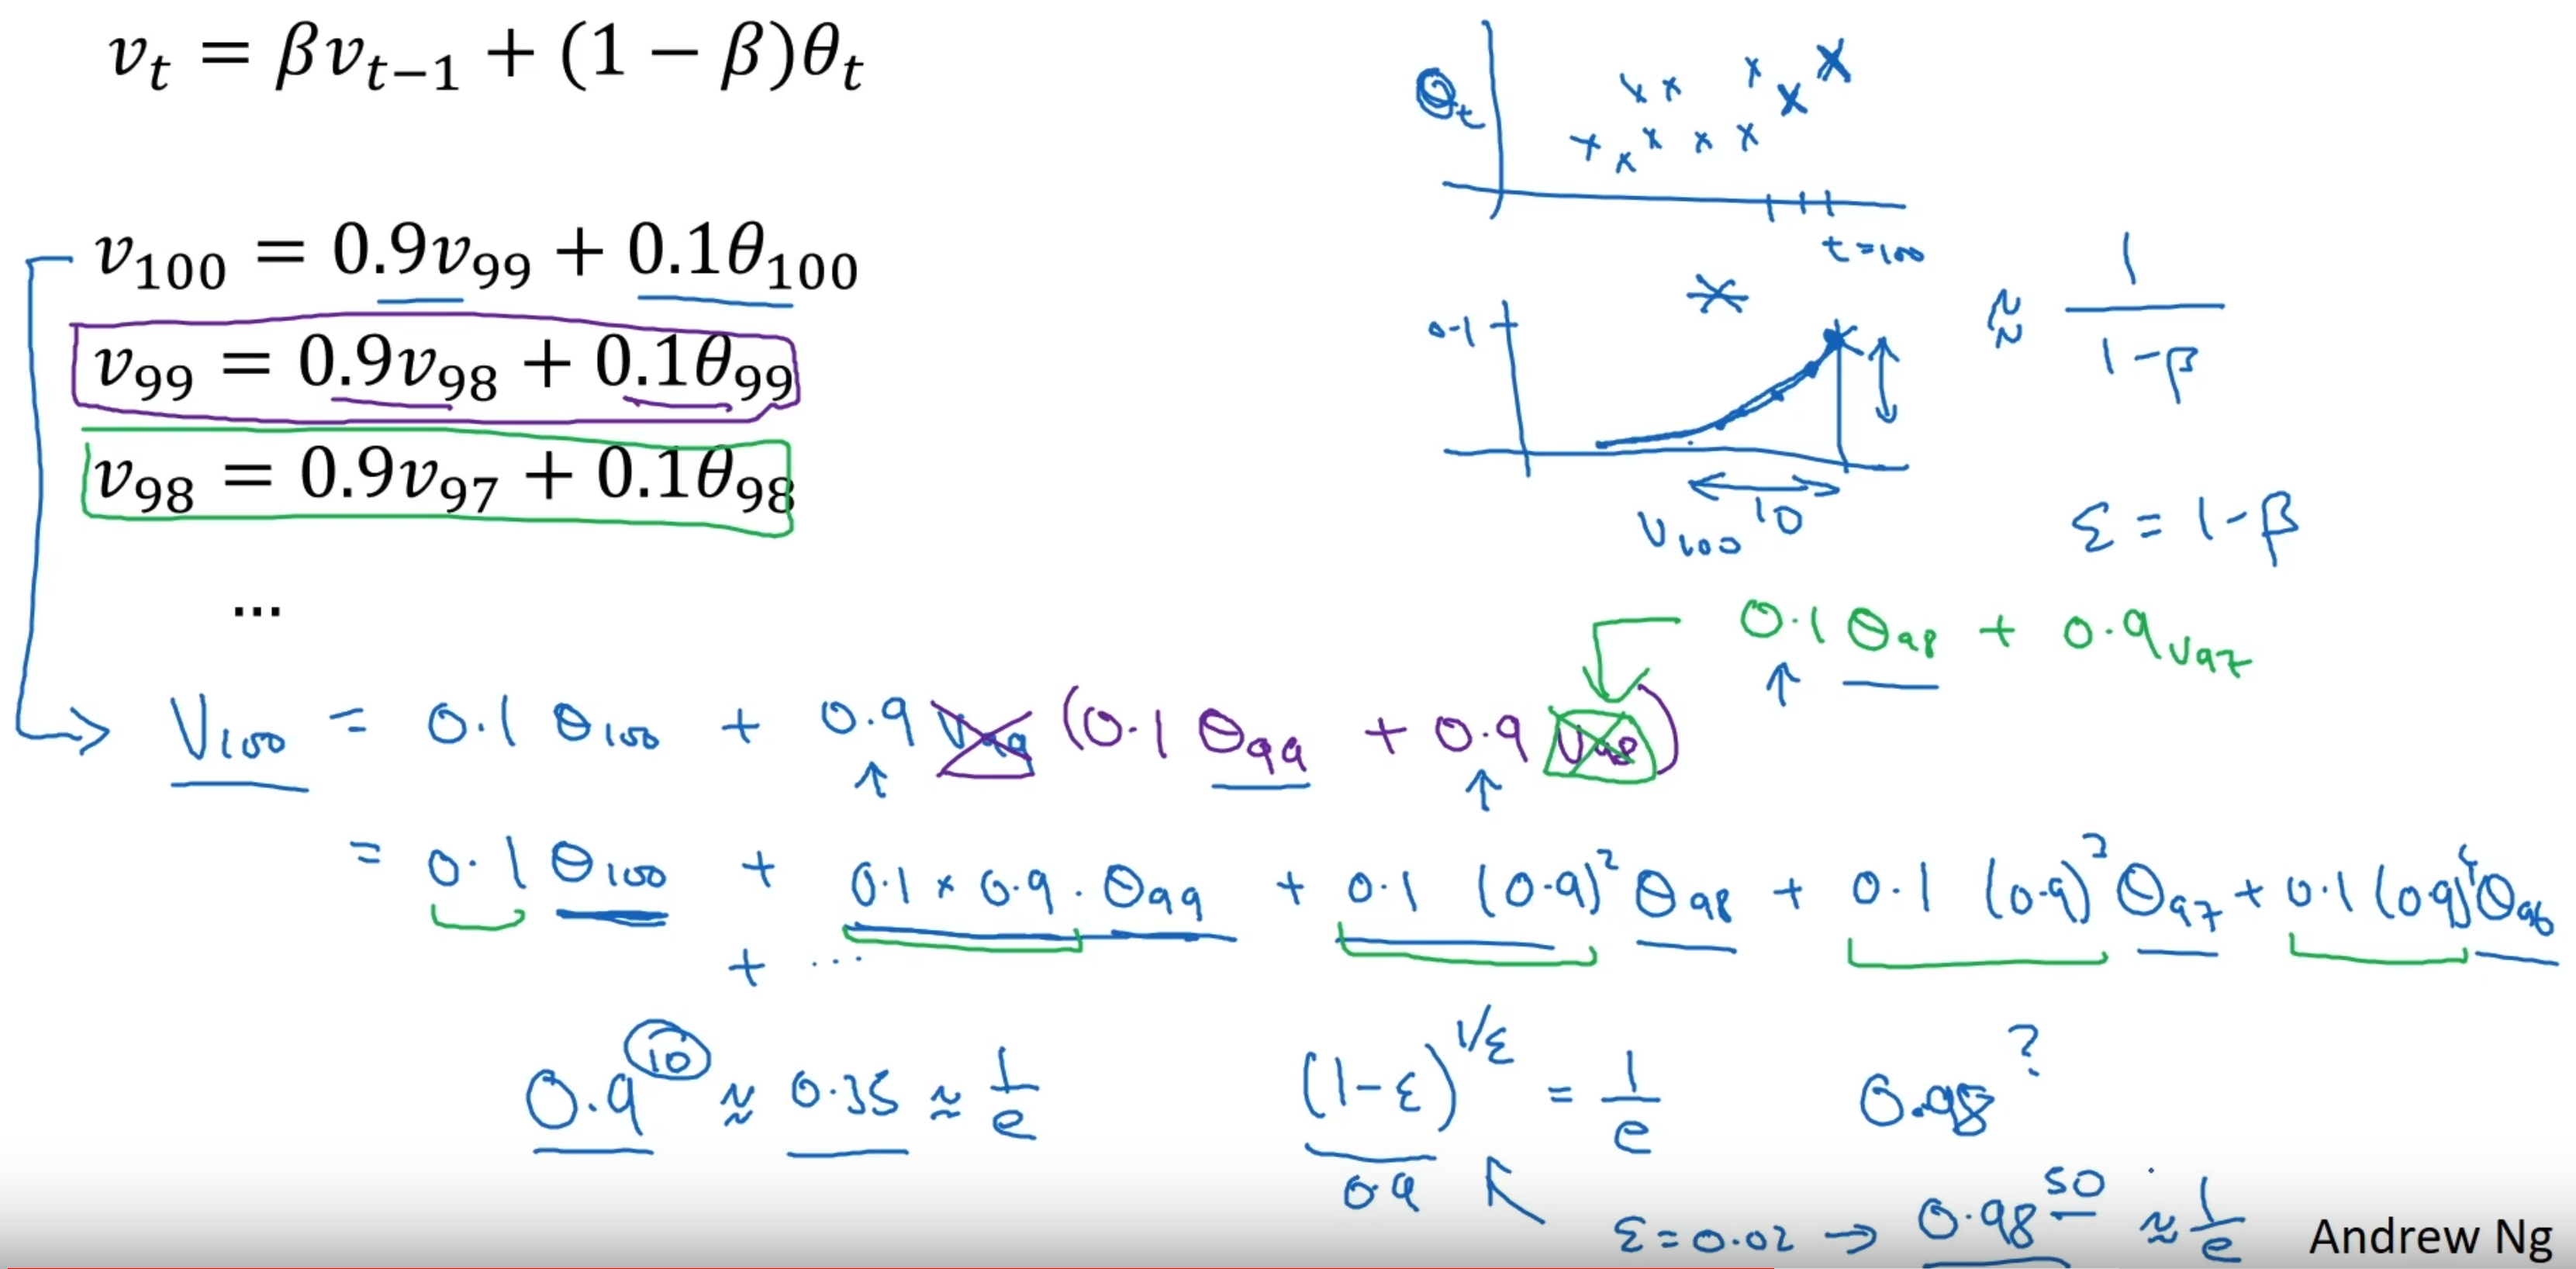 vₜ = βvₜ₋₁ + (1 − β)θₜ
θₜ
t=100
v₁₀₀ = 0.9v₉₉ + 0.1θ₁₀₀
v₉₉ = 0.9v₉₈ + 0.1θ₉₉
v₉₈ = 0.9v₉₇ + 0.1θ₉₈
...
0.1
10
V₁₀₀
≈ 1/(1-β)
ε = 1-β
0.1 θ₉₈ + 0.9 V₉₇
V₁₀₀ = 0.1 θ₁₀₀ + 0.9 V₉₉ (0.1 θ₉₉ + 0.9 V₉₈)
= 0.1 θ₁₀₀ + 0.1 × 0.9 · θ₉₉ + 0.1 (0.9)² θ₉₈ + 0.1 (0.9)³ θ₉₇ + 0.1 (0.9)⁴ θ₉₆
+ ...
0.9¹⁰ ≈ 0.35 ≈ 1/e
(1-ε)^(1/ε) = 1/e
0.9
0.98^?
ε = 0.02 → 0.98⁵⁰ ≈ 1/e
Andrew Ng